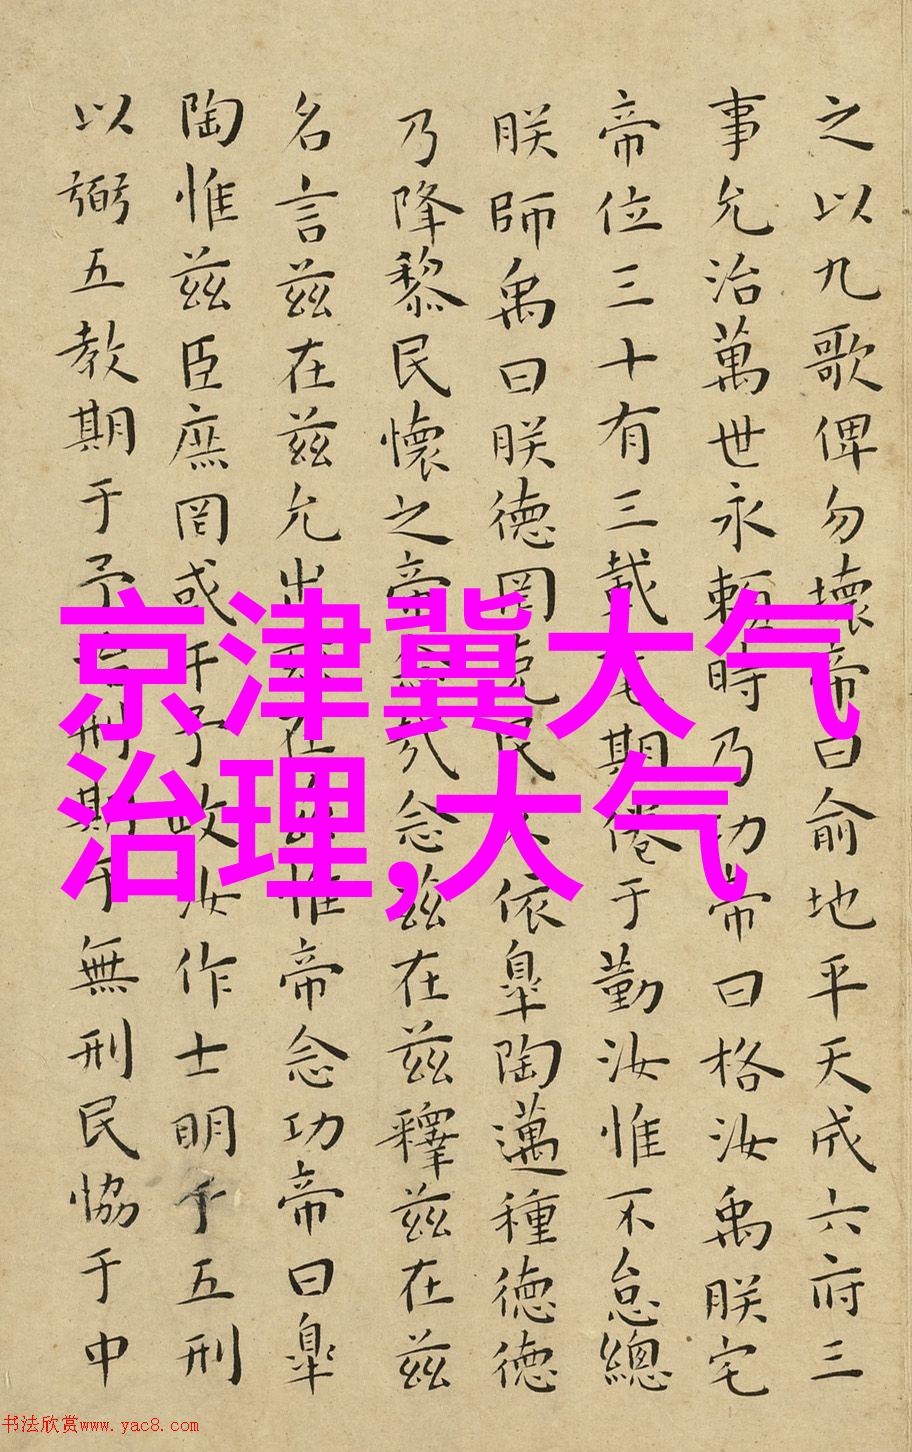 之以九歌俾勿壞帝曰俞地平天成六府三
事允治萬世永賴時乃功帝曰格汝禹朕宅
帝位三十有三載耄期倦于勤汝惟不怠總
朕師禹曰朕德罔克民不依皐陶邁種德德
乃降黎民懷之帝念哉念茲在茲釋茲在茲
名言茲在茲允出茲在茲惟帝念功帝曰皐
陶惟茲臣庶罔或干予政汝作士明于五刑
以弼五教期于予治刑期于無刑民協于中
京津冀大气
治理,大气
书法欣赏www.yac8.com